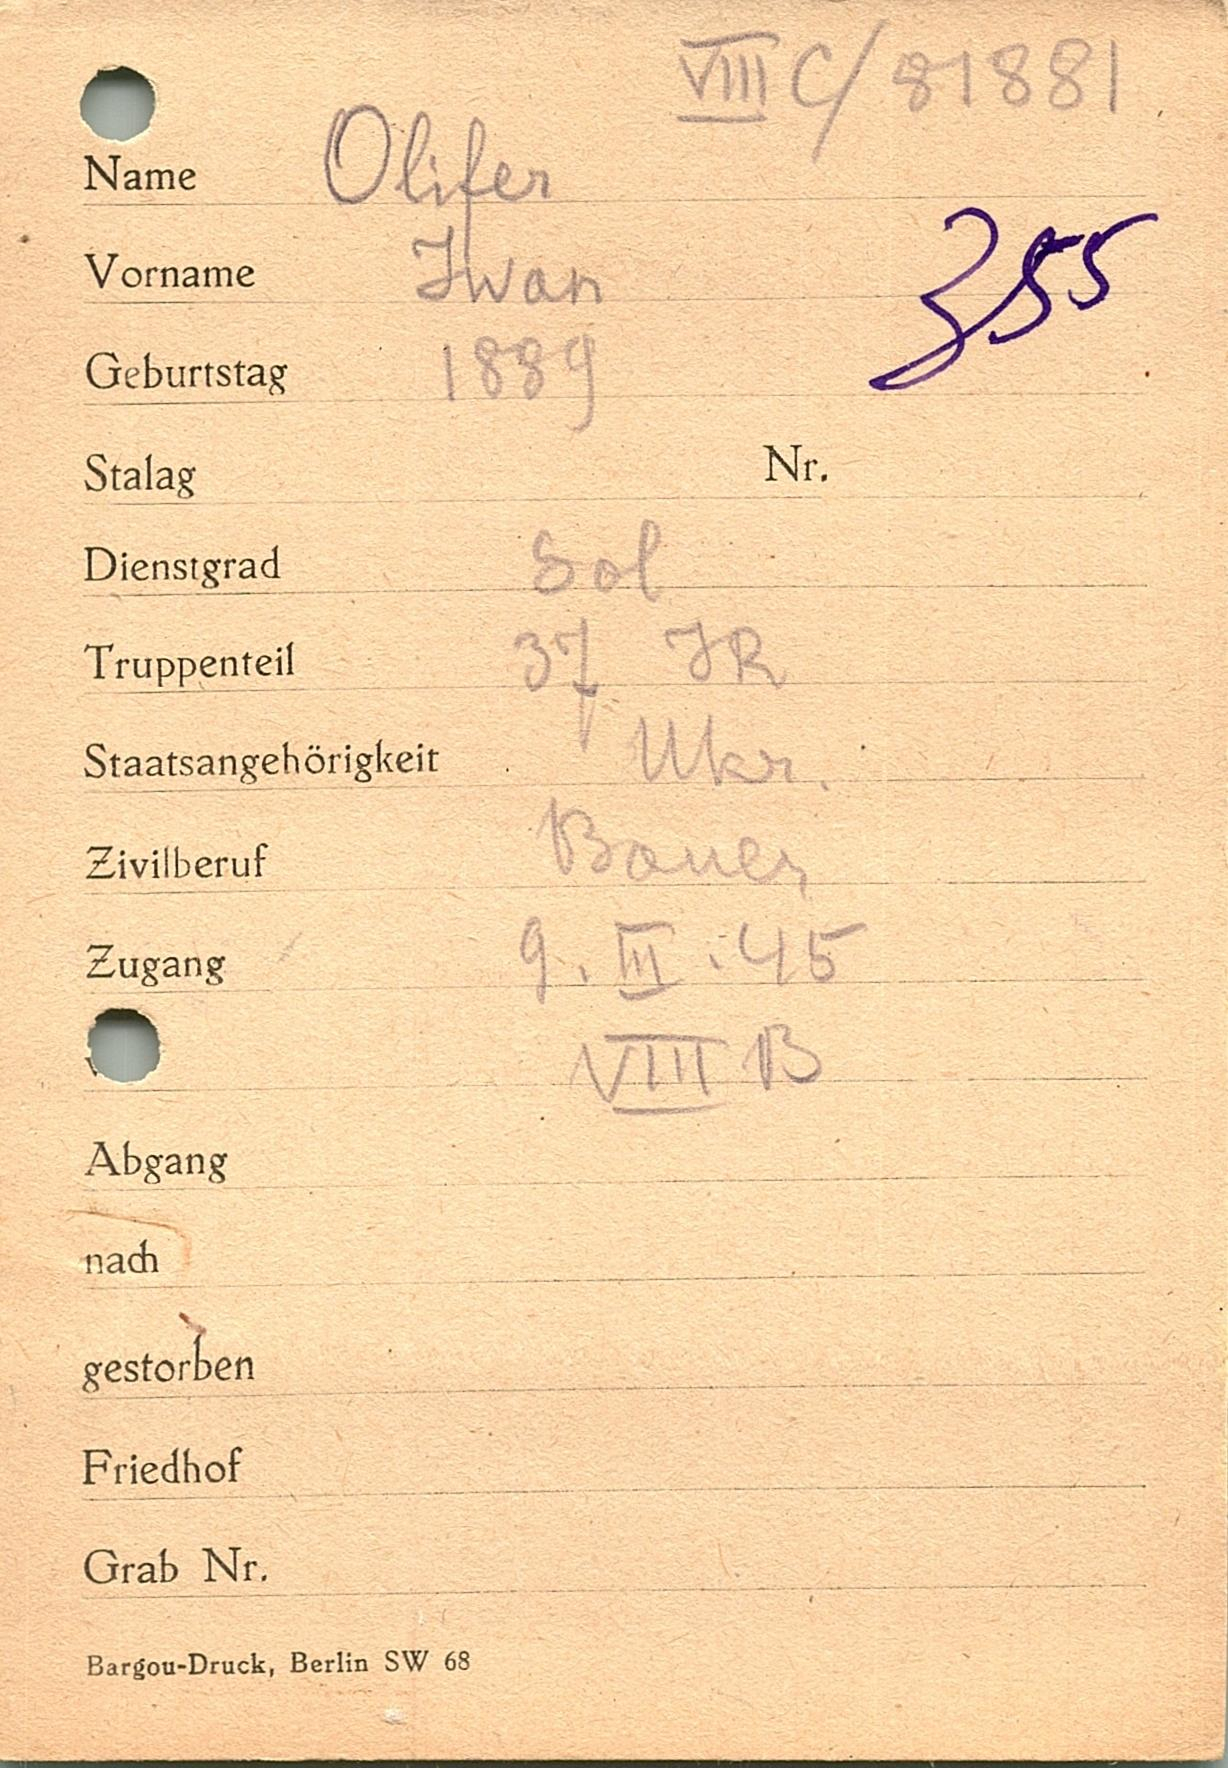 VIII C/ 81881
Name Olifer
Vorname Iwan
355
Geburtstag 1889
Stalag Nr.
Dienstgrad Sol
Truppenteil 37 IR
Staatsangehörigkeit Ukr.
Zivilberuf Bauer
Zugang 9. III. 45
VIII B
Abgang
nach
gestorben
Friedhof
Grab Nr.
Bargou-Druck, Berlin SW 68